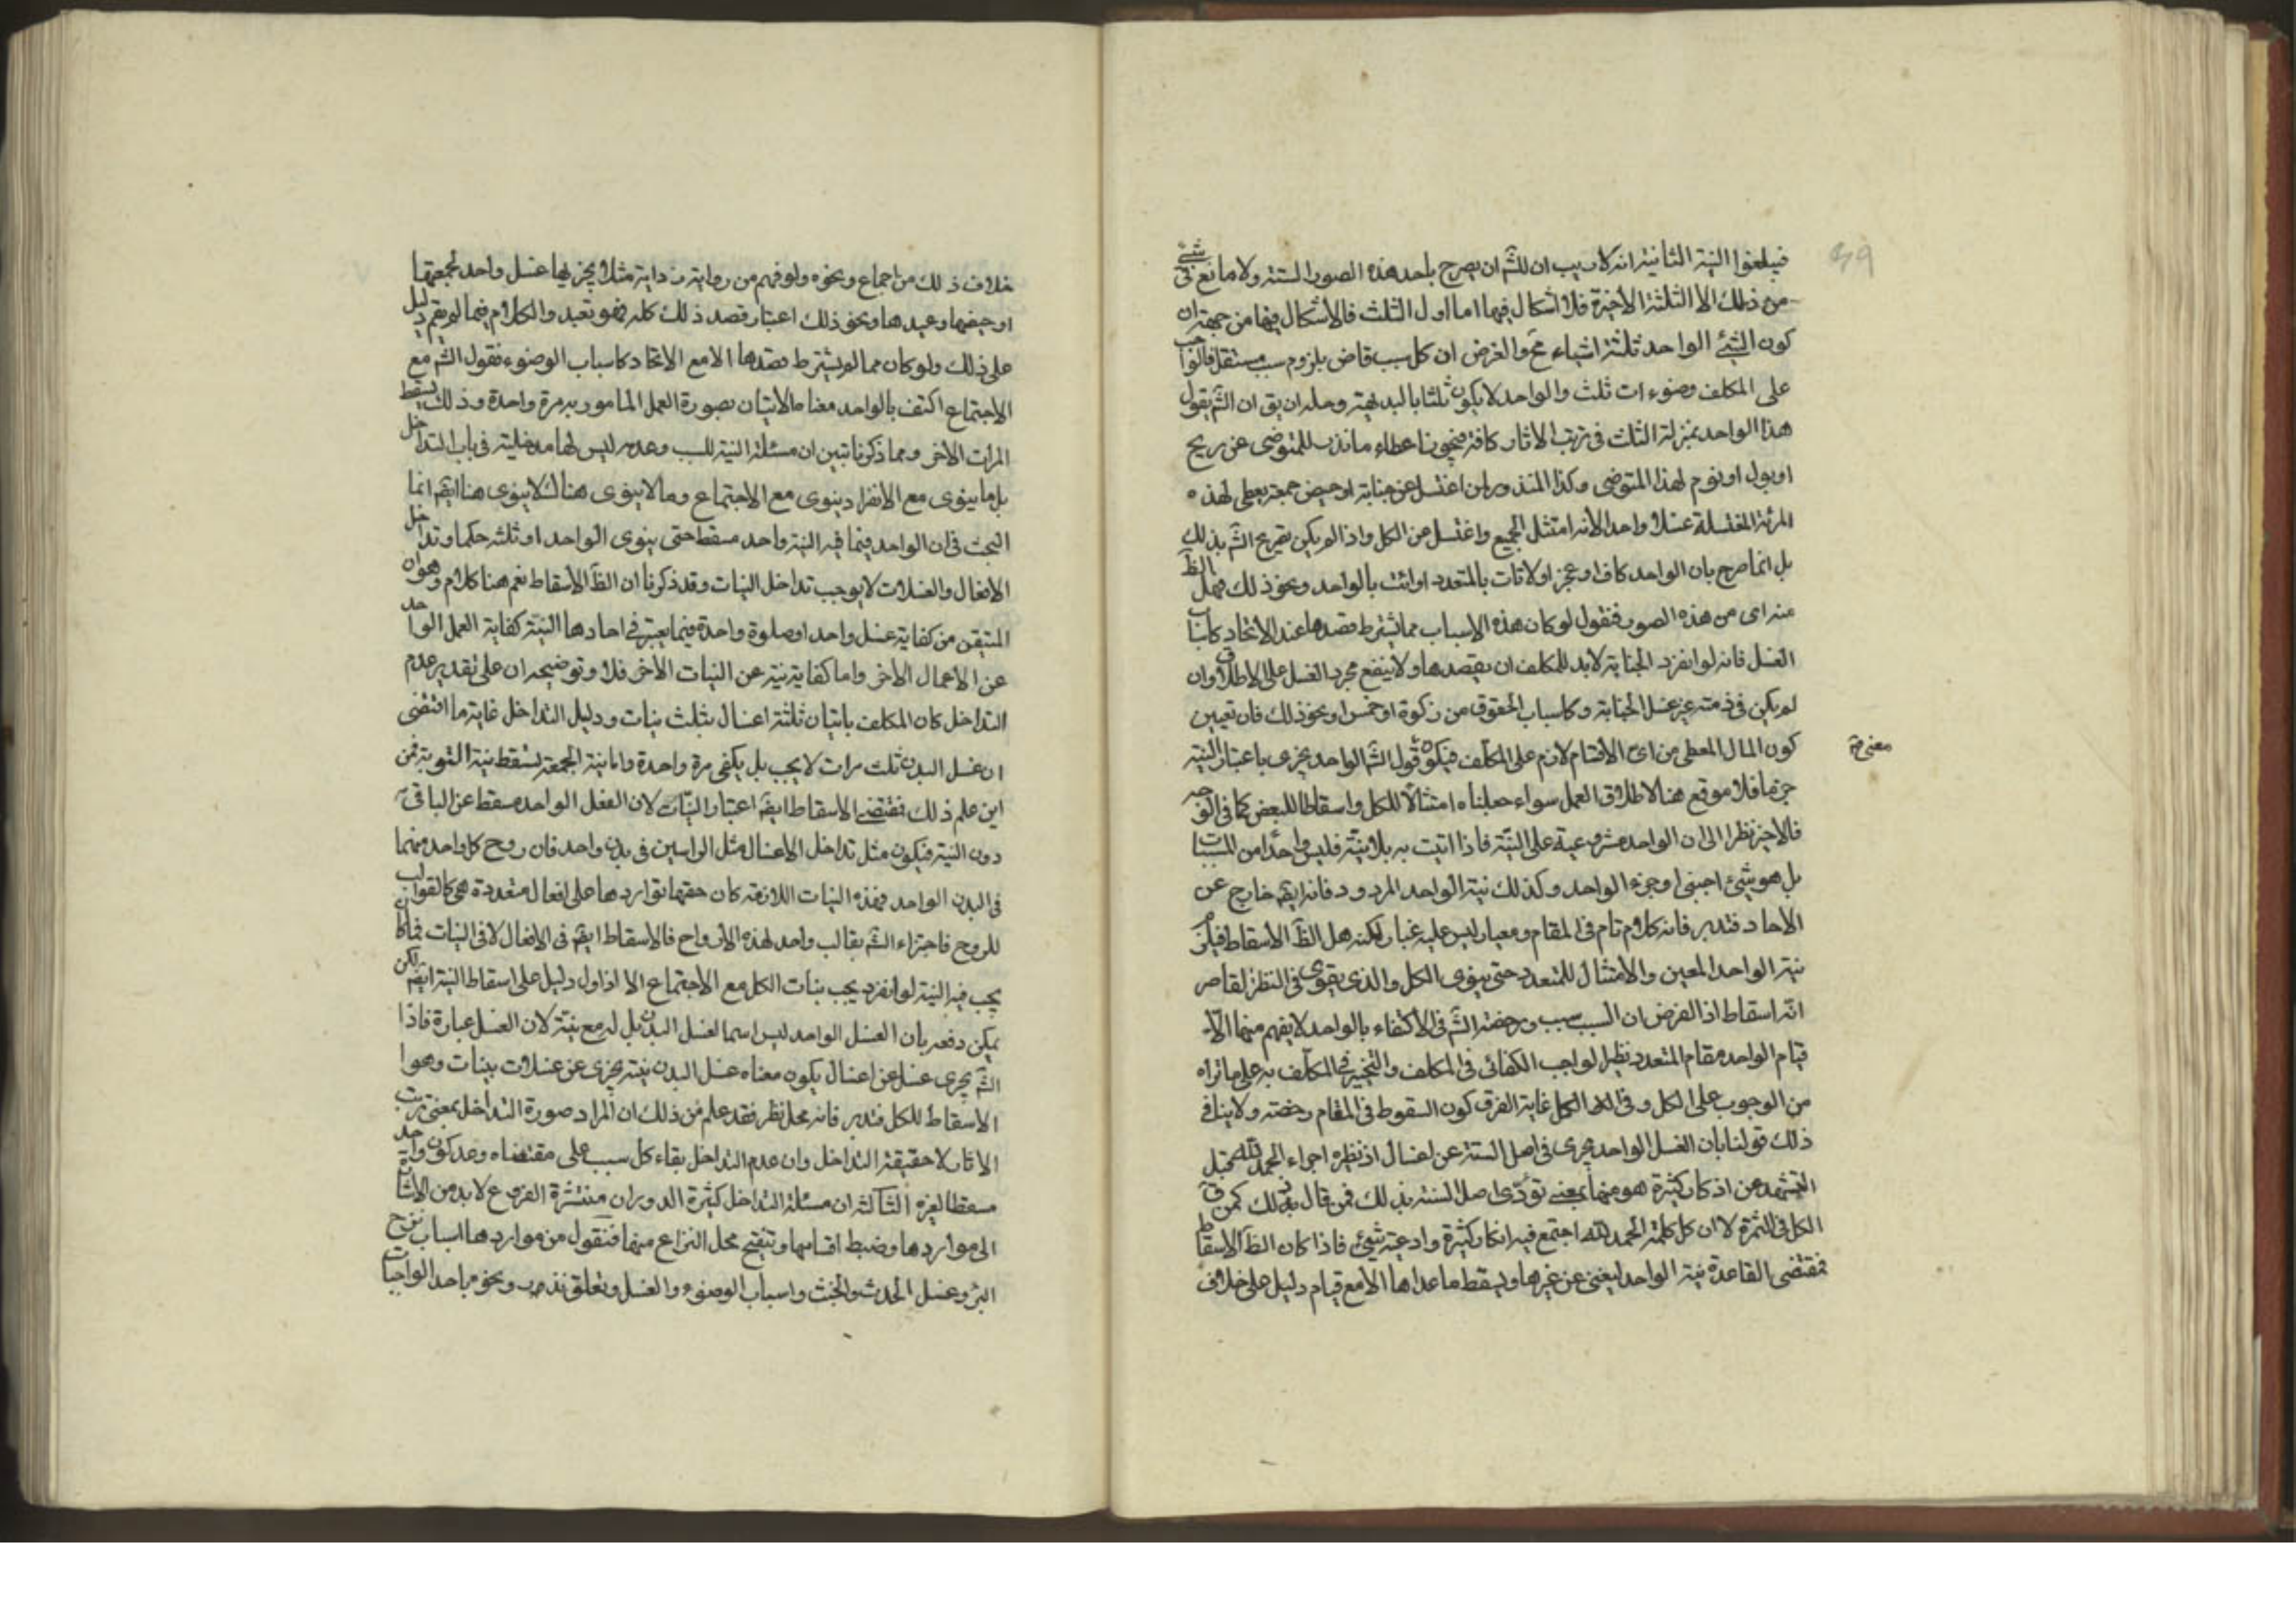 فيلغوا النية الثانية انه لا ريب ان للشّ ان يصرح باحد هذه الصور الستة ولا مانع فى شئ
من ذلك الا الثلثة الاخيرة فلا اشكال فيها اما اول الثلث فالاشكال فيها من جهة ان
كون الشئ الواحد ثلثة اشياء مح والغرض ان كل سبب قاض بلزوم سبب مستقل فالواجب
على المكلف وضوءات ثلث والواحد لا يكون ثلثا بالبديهة وحله ان يق ان الشّ يقول
هذا الواحد بمنزلة الثلث فى ترتب الاثار كافة فيجوز اعطاء ما نذر للمتوضى عن ريح
او بول او نوم لهذا المتوضى وكذا المنذور لمن اغتسل عن جنابة او حيض جمعة يعطى لهذه
المرئة المغتسلة غسلا واحدا لانه امتثل الجميع واغتسل من الكل واذا لم يكن تصريح الشّ بذلك
بل انما صرح بان الواحد كاف او مجز او لا تات بالمتعدد او ائت بالواحد ونحو ذلك فهل الظّ
منه اى من هذه الصور فنقول لو كان هذه الاسباب مما يشترط قصدها عند الاتحاد كاسباب
الغسل فانه لو انفرد الجنابة لا بد للمكلف ان يقصدها ولا ينفع مجرد الغسل على الاطلاق وان
لم يكن فى ذمته غير غسل الجنابة وكاسباب الحقوق من زكوة او خمس او نحو ذلك فان تعيين
كون المال المعطى من اى الاقسام لازم على المكلف فيكون قول الشّ الواحد يجزى باعتبار النية
جزما فلا موقع هنا لاطلاق العمل سواء جعلناه امتثالا للكل واسقاطا للبعض كما فى الوجه
فالاخير نظرا الى ان الواحد مشروعية على النيّة فاذا اتيت به بلا نيّة فليس واحدا من المسببات
بل هو شئ اجنبى او جزء الواحد وكذلك نية الواحد المردود فانه ايضّ خارج عن
الاحاد فتدبر فانه كلام تام فى المقام ومعيار ليس عليه غبار لكنه هل الظّ الاسقاط فيلزم
نية الواحد المعين والامتثال للمتعدد حتى ينوى الكل والذى يقوى فى النظر القاصر
انّه اسقاط اذ الفرض ان السبب سبب ورخصة الشّ فى الاكتفاء بالواحد لا يفهم منها الّا
قيام الواحد مقام المتعدد نظير الواجب الكفائى فى المكلف والتخيير فى المكلف به على ما نراه
من الوجوب على الكل وفى الكل غاية الفرق كون السقوط فى المقام رخصة ولا ينافى
ذلك قولنا بان الغسل الواحد يجزى فى اصل السنة عن اغسال اذ نظيره اجزاء الحمد لله قبل
التشهد من اذكار كثيرة هو منها بمعنى تؤدّى اصل السنة بذلك فمن قال بذلك كمن ق
الكل فى الثمرة لا ان كل كلمة الحمد لله اجتمع فيه اذكار كثيرة وادعية شئ فاذا كان الظّ الاسقاط
فمقتضى القاعدة نية الواحد ليغنى عن غيرها ويسقط ما عداها الا مع قيام دليل على خلاف
خلاف ذلك من اجماع ونحوه ولو فهم من رواية زرارة مثلا يجزيها غسل واحد لجمعتها
او حيضها وعيدها ونحو ذلك اعتبار قصد ذلك كله فهو تعبد والكلام فيما لم يقم دليل
على ذلك ولو كان مما لم يشترط قصدها الا مع الاتحاد كاسباب الوضوء فقول الشّ مع
الاجتماع اكتف بالواحد معناه الاتيان بصورة العمل المامور به مرة واحدة وذلك يسقط
المرات الاخر ومما ذكرنا تبين ان مسئلة النية للسبب وعدمه ليس لها مدخلية فى باب التداخل
بل ما ينوى مع الانفراد ينوى مع الاجتماع وما لا ينوى هناك لا ينوى هنا ايضّ انما
البحث فى ان الواحد فيما فيه النية واحد مسقط حتى ينوى الواحد او ثلثه حكما وتداخل
الافعال والغسلات لا يوجب تداخل النيات وقد ذكرنا ان الظّ الاسقاط نعم هنا كلام وهو ان
المتيقن من كفاية غسل واحد او صلوة واحدة فيما يعتبر فى احادها النية كفاية العمل الواحد
عن الاعمال الاخر واما كفاية نيته عن النيات الاخر فلا وتوضيحه ان على تقدير عدم
التداخل كان المكلف باتيان ثلثة اغسال بثلث نيات ودليل التداخل غاية ما اقتضى
ان غسل البدن ثلث مرات لا يجب بل يكفى مرة واحدة واما نية الجمعة تسقط نية التوبة فمن
اين علم ذلك فمقتضى الاسقاط ايضّ اعتبار النيّات لان الفعل الواحد مسقط عن الباقى
دون النية فيكون مثل تداخل الاغسال مثل الراسين فى بدن واحد فان روح كل واحد منهما
فى البدن الواحد فهذه النيات اللازمة كان حقها تواردها على افعال متعددة هى كالقوالب
للروح فاجتزاء الشّ بقالب واحد لهذه الارواح فالاسقاط ايضّ فى الافعال لا فى النيات فما كان
يجب فيه النية لو انفرد يجب نيات الكل مع الاجتماع الا اذا دل دليل على اسقاط النية ايضّ لكن
يمكن دفعه بان الغسل الواحد ليس اسما لغسل البدن بل له مع نيّة لان الغسل عبارة فاذا
الشّ يجزى غسل عن اغسال يكون معناه غسل البدن بنية يجزى عن غسلات بنيات وهو
الاسقاط للكل فتدبر فانه محل نظر فقد علم من ذلك ان المراد صورة التداخل بمعنى ترتب
الاثار لا حقيقة التداخل وان عدم التداخل بقاء كل سبب على مقتضاه وعد كون واحد
مسقطا لغيره الثالثة ان مسئلة التداخل كثيرة الدوران منتشرة الفروع لا بد من الاشارة
الى مواردها وضبط اقسامها وتنقيح محل النزاع منها فنقول من مواردها اسباب نزح
البئر وغسل الحدث والخبث واسباب الوضوء والغسل وتعلق نذر ونحوه باحد الواجبات